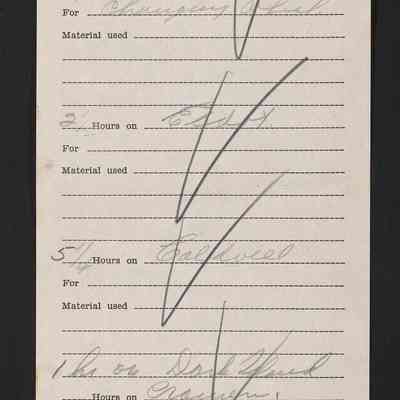 For Changing Wheel
Material used
2 Hours on Essex
For
Material used
5 1/4 Hours on Caldwell
For
Material used
1 hr on
Hours on